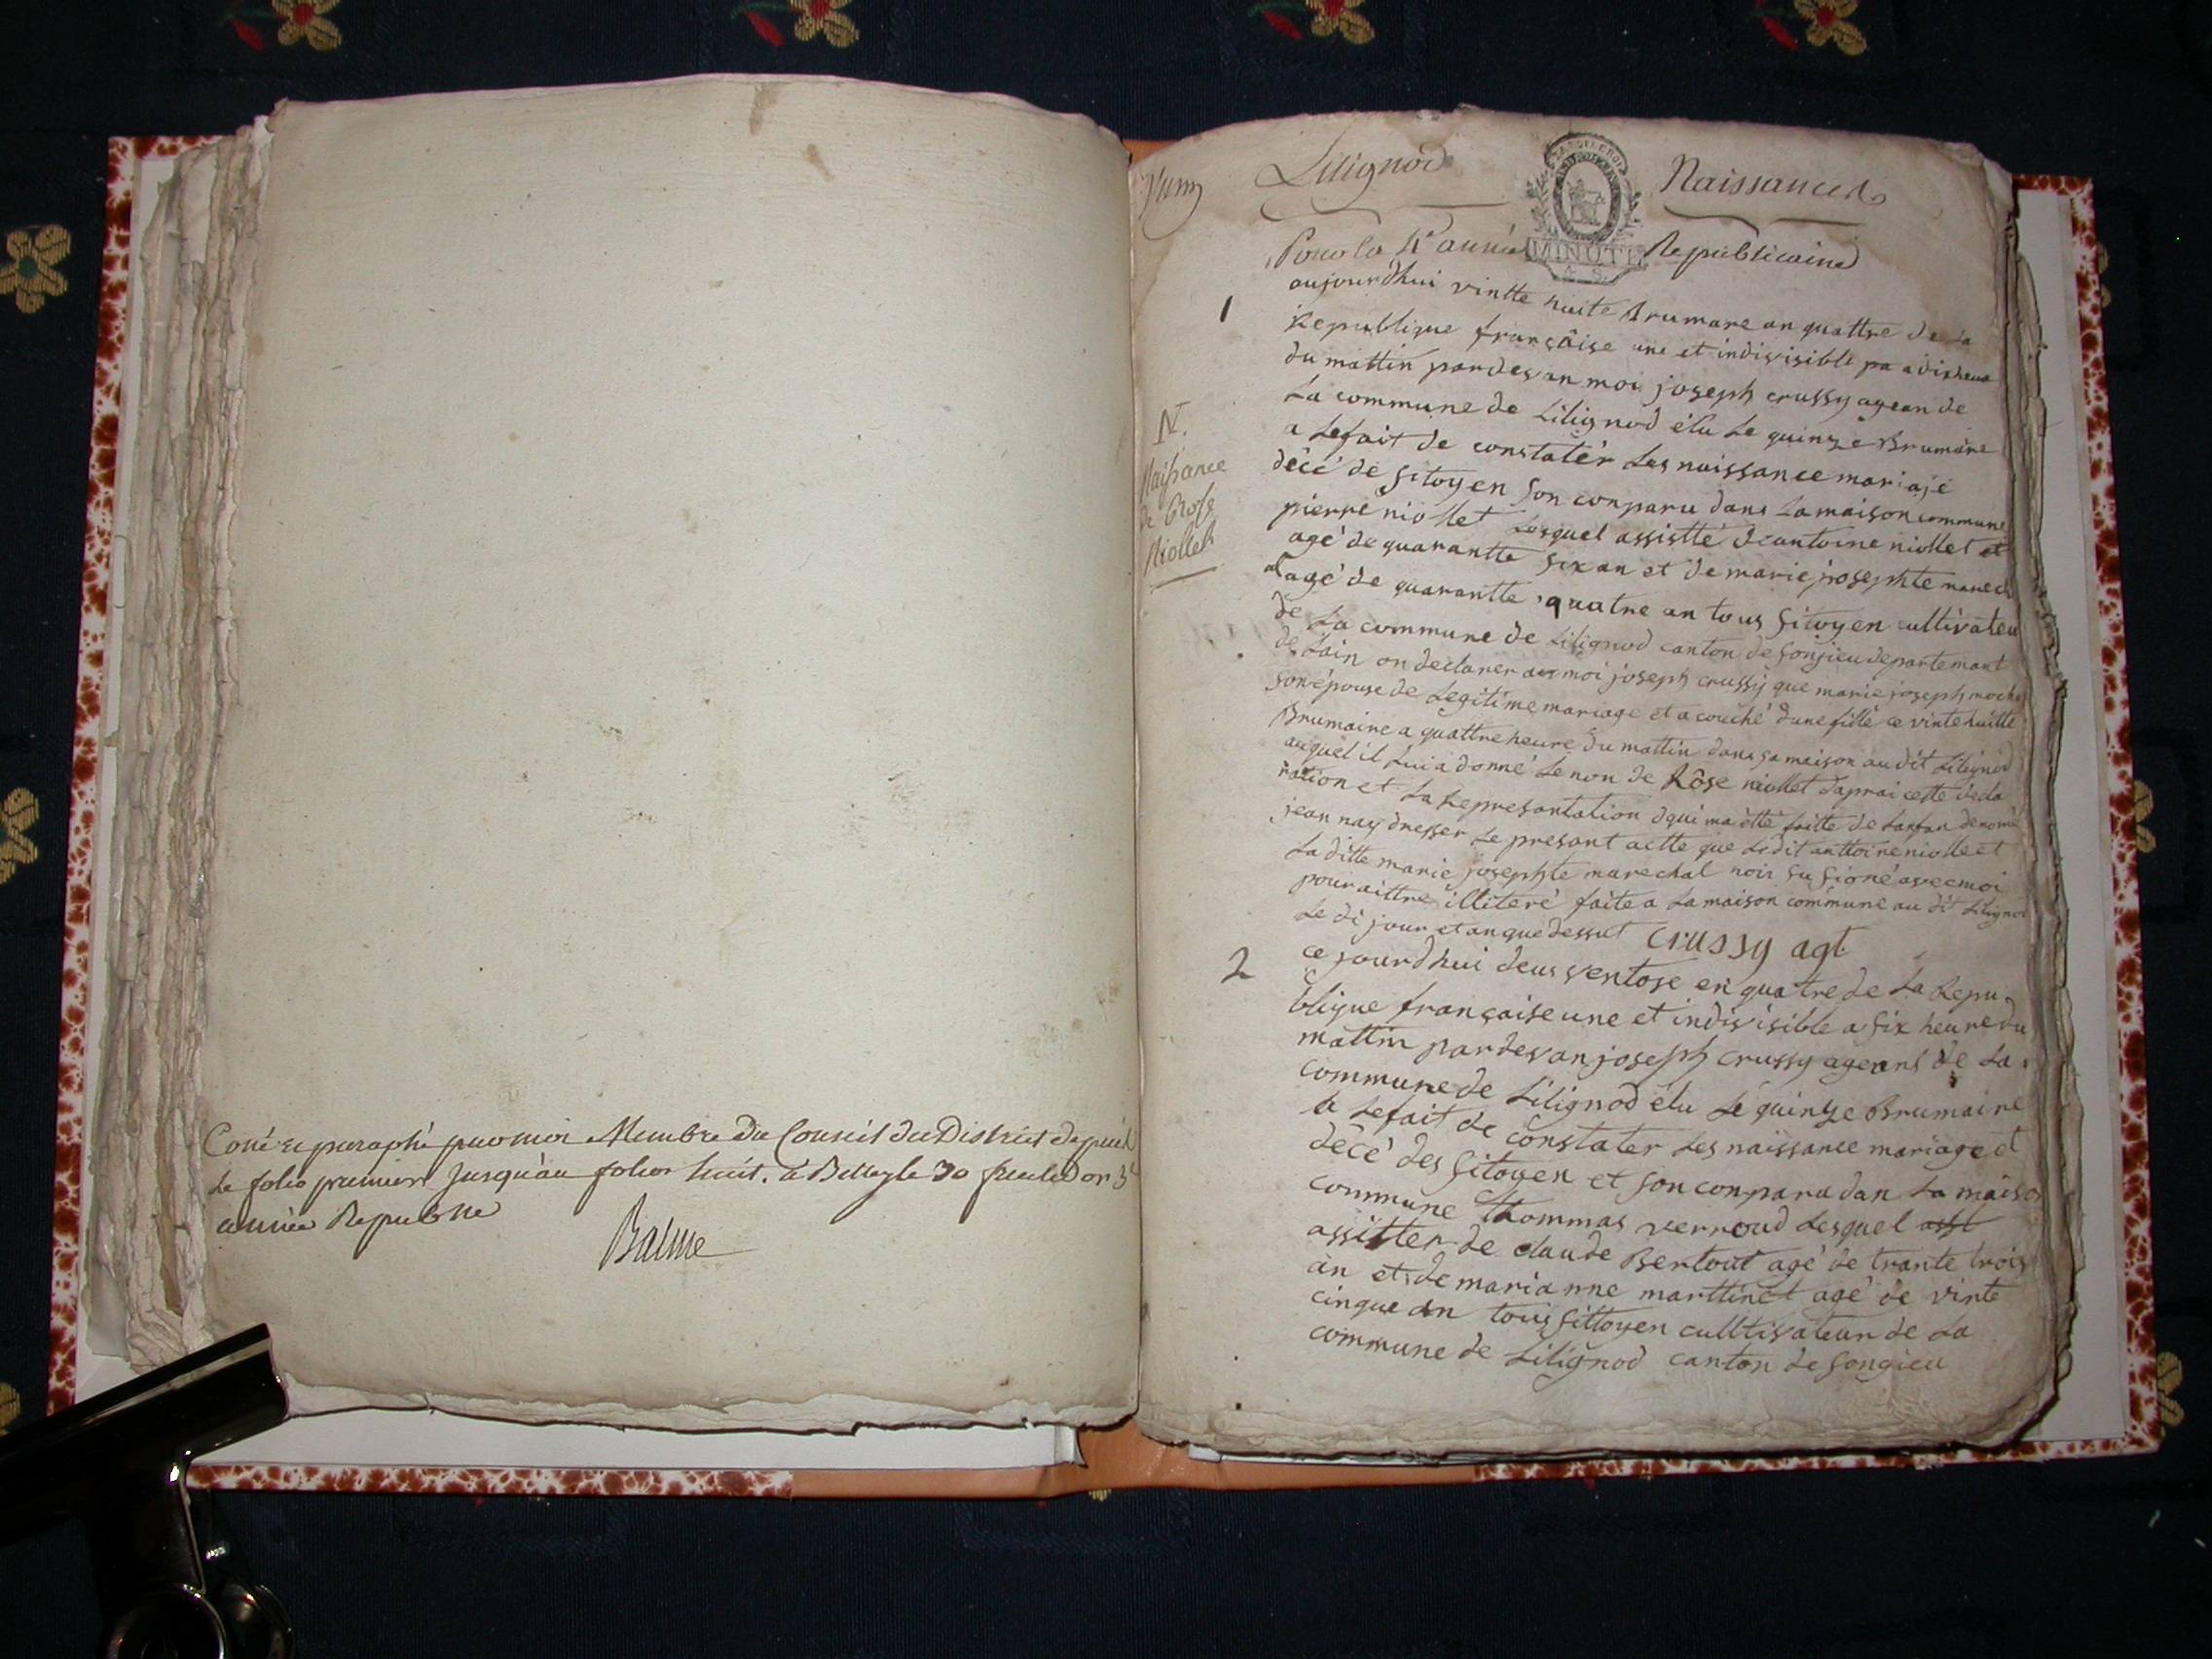 Coné et paraphé par moi Membre du Conseil du District depuis
Le folio premier Jusqu'au folio huit. à Belley le 30 fructidor 3e
année Republne
Balme
Lilignod
Naissances
Pour la 4e année Republicaine
MINUTE
1
aujourdhui vintte huite Brumare an quattre de La
Republique françàise une et indivisible a dix heure
du mattin pardevan moi joseph crussy agean de
La commune de Lilignod élu Le quinze Brumaire
a Lefait de constatér Les naissance mariaje
décé de sitoyen son conparu dans La maison commune
pierre niollet Lesquel assistté de antoine niollet et
agé de quarantte six an et de marie josephte marech
al agé de quarantte quatre an tous sitoyen cultivateu
de La commune de Lilignod canton de sonjieu departemant
de Lain on declarer a moi joseph crussy que marie joseph
son épouse de Legitime mariage et a couché dune fillé ce vinte huitte
Brumaire a quattre heure du mattin dans sa maison au dit Lilignod
auquel il Lui a donné Le non de Rôse niollet daprai cette decla
ration et La Representation qui ma étté faitte de Lanfan denomé
jean nay dresser Le presant actte que Ledit anttoine niollet
La ditte marie josephte marechal noir su signé avec moi
pour aittre illiteré faite a La maison commune au dit Lilignod
Le di jour et an que dessut crussy agt
N.
Naissance
de Rose
Niollet
2
ce jourdhui deus ventose en quatre de La Repu
blique française une et indivisible a six heure du
mattin pardevan joseph crussy ageant de La
commune de Lilignod élu Le quinze Brumaire
a Lefait de constater Les naissance mariage et
décé des sitoyen et son conparu dan La maison
commune thommas verroud Lesquel asst
assistter de claude Bertout agé de trante trois
an et de marianne marttinet agé de vinte
cinque an tous sittoyen culltivateur de La
commune de Lilignod canton de songieu